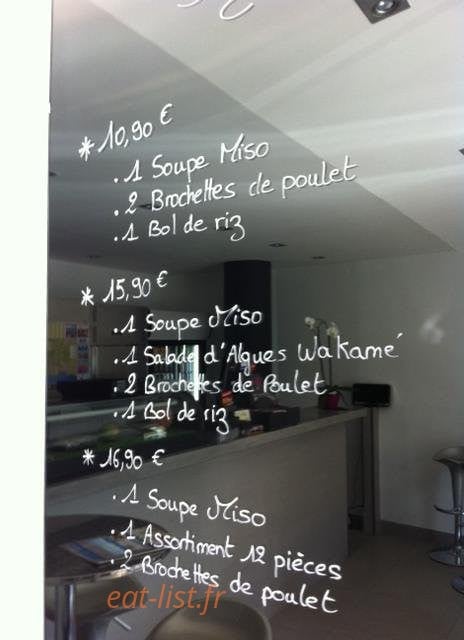 * 10,90 €
. 1 Soupe Miso
. 2 Brochettes de poulet
. 1 Bol de riz
* 15,90 €
. 1 Soupe Miso
. 1 Salade d'Algues Wakamé
. 2 Brochettes de Poulet
. 1 Bol de riz
* 16,90 €
. 1 Soupe Miso
. 1 Assortiment 12 pièces
. 2 Brochettes de poulet
eat-list.fr